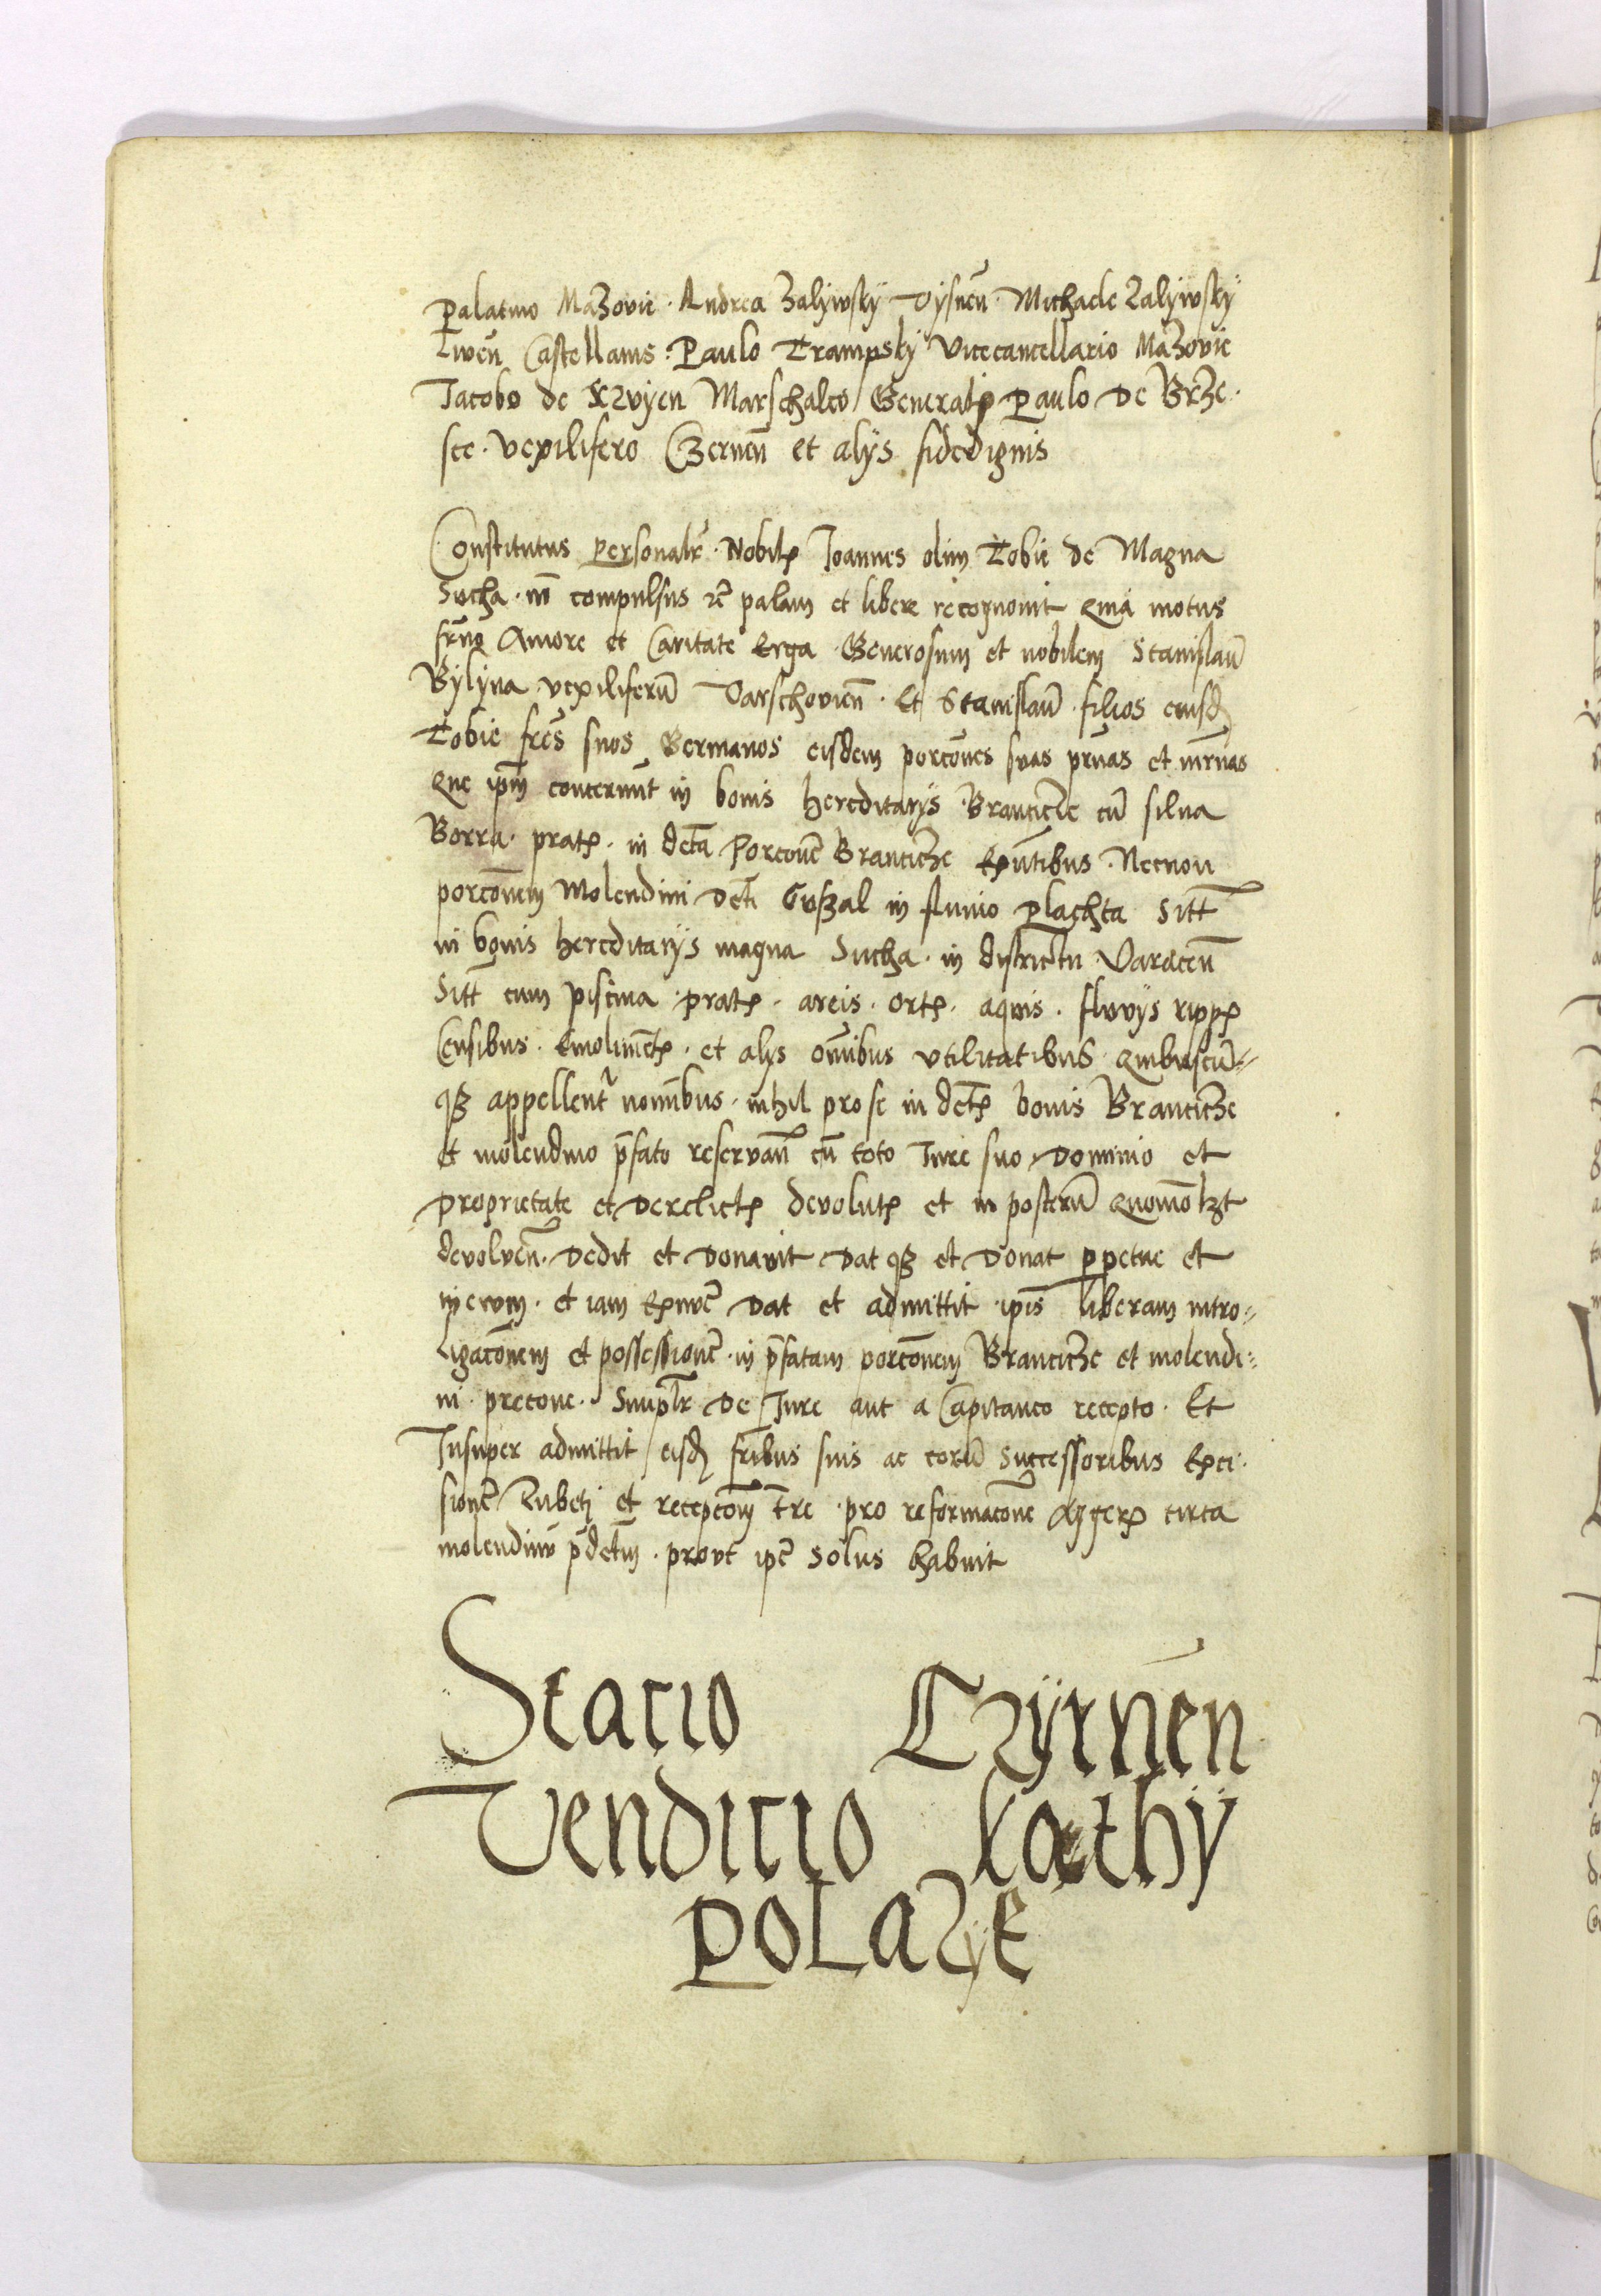 Palatino Mazovie · Andrea Zalÿwskÿ Vysneñ · Michaele Zalÿwskÿ
Liweñ Castellanis · Paulo Trampskÿ Vicecancellario Mazovie
Jacobo de Marschalco Paulo De Brze·
sce · vexilifero Czerneñ et alÿs fidedignis
Constitutus personalr̃ · Nobilꝭ Joannes olim Tobie de Magna
Sucha · nõ compulsus rc̃ palam et libere recognovit quia motus
fr̃no Amore et Caritate Erga Generosum et nobilem Stanislaũ
Bylÿna vexiliferũ Varschovieñ · Et Stanislaũ filios eiusd̃
Tobie fr̃es suos Germanos eisdem porcões suas pr̃nas et mr̃nas
que ip̃m concernũt in bonis hereditarÿs Branticze cũ silva
Borra · pratꝭ · in dc̃ta Porcõne Branticze exñtibus · Necnon
porcõnem molendini dc̃ti Guszal in fluvio Plachta Sitt̃
in bonis hereditarÿs magna Sucha · in districtu Varcceñ
Sitt̃ cum piscina · pratꝭ · areis · ortꝭ · aquis · fluvÿs rippꝭ
Censibus · Emolimẽtꝭ · et alÿs õnibus utilitatibus quibuscũ=
qꝫ appellent᷑ nonı̃bus · nihil pro se in dc̃tꝭ bonis Branticze
et molendino p̃fato reservañ cũ toto Jure suo Dominio et
proprietate et Derelictꝭ devolutꝭ et in posterũ quomõlꝫt
devolveñ · Dedit et Donavit Dat qꝫ et Donat ꝑpetue et
in evom · et iam exnũc Dat et admittit ip̃is liberam intro=
ligacõnem et possessionẽ in p̃fatam porcõnem Branticze et molendi=
ni · precone · Simplr̃ De Jure aut a Capitaneo recepto · Et
Insuper admittit eisd̃ fr̃ibus suis ac eorũ Successoribus Exci·
sionẽ Rubeti et recepcõm tr̃e · pro reformacõne Aggerꝭ circa
molendinũ p̃dc̃tm · prout ip̃e solus habuit
Stacio Czÿrneñ
Venditio Kathÿ
POLAZYE